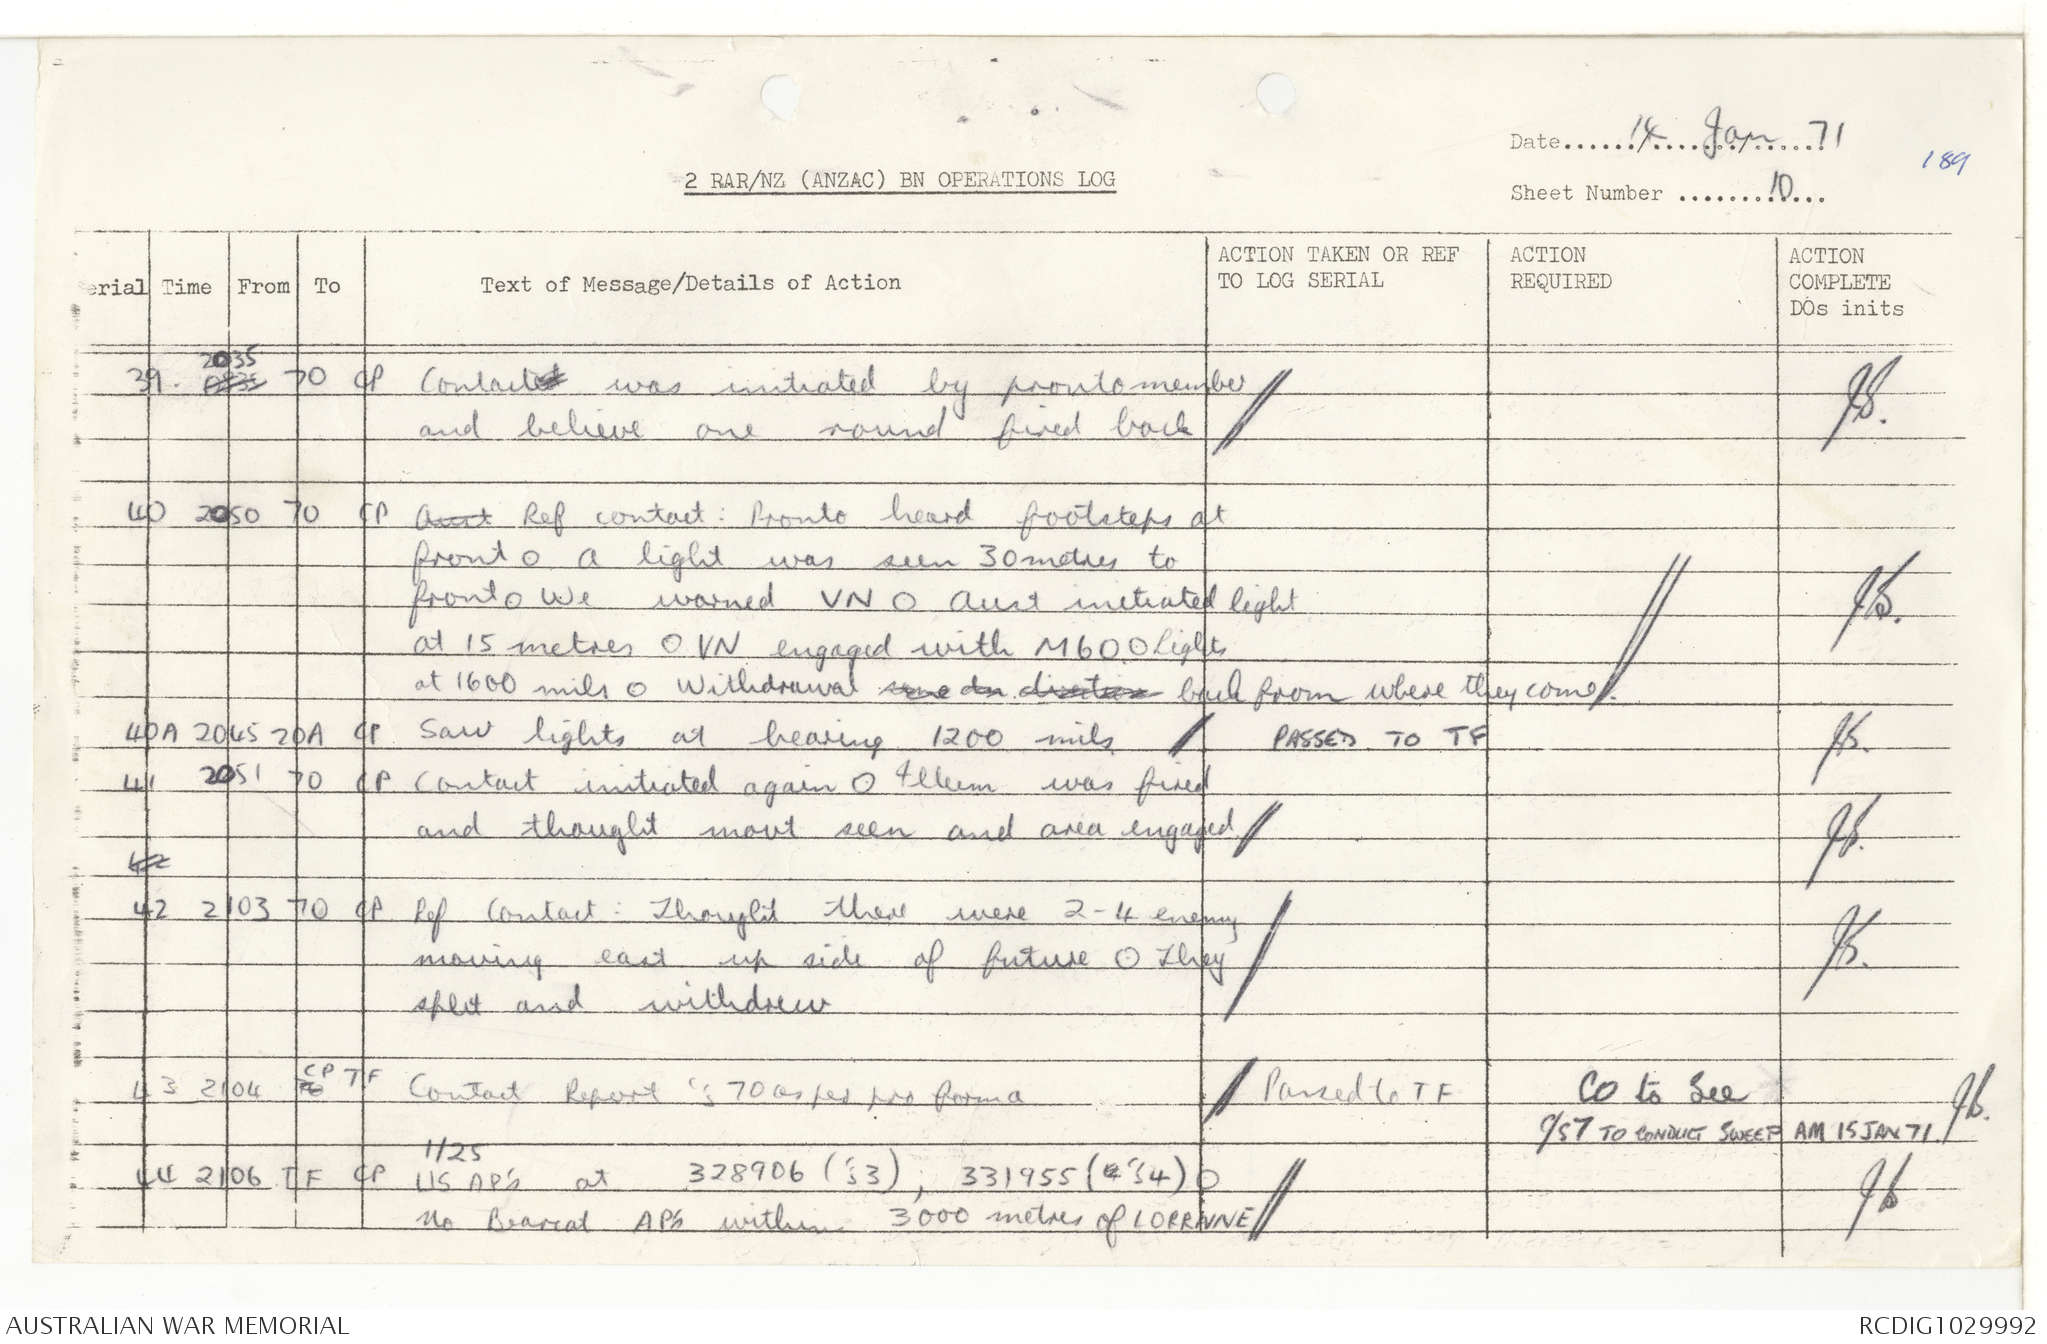 Date......14....Jan....71
189
2 RAR/NZ (ANZAC) BN OPERATIONS LOG
Sheet Number ........10....
erial Time From To Text of Message/Details of Action ACTION TAKEN OR REF TO LOG SERIAL ACTION REQUIRED ACTION COMPLETE DOs inits
39. 2035 70 CP Contact was initiated by pronto member
and believe one round fired back
40 2050 70 CP Aust Ref contact: Pronto heard footsteps at
front O A light was seen 30 metres to
front O We warned VN O Aust initiated light
at 15 metres O VN engaged with M60 O Lights
at 1600 mils O Withdrawal back from where they come.
40A 2045 20A CP Saw lights at bearing 1200 mils PASSED TO TF
41 2051 70 CP Contact initiated again O Illum was fired
and thought movt seen and area engaged
42
42 2103 70 CP Ref Contact: Thought there were 2-4 enemy
moving east up side of future O They
split and withdrew
43 2104 CP TF Contact Report C/S 70 as per pro forma Passed to TF CO to See
C/S 7 TO CONDUCT SWEEP AM 15 JAN 71
1/25
44 2106 TF CP US AP's at 328906 ('s3), 331955 ('s4) O
No Bearcat AP's within 3000 metres of LORRAINE
AUSTRALIAN WAR MEMORIAL
RCDIG1029992